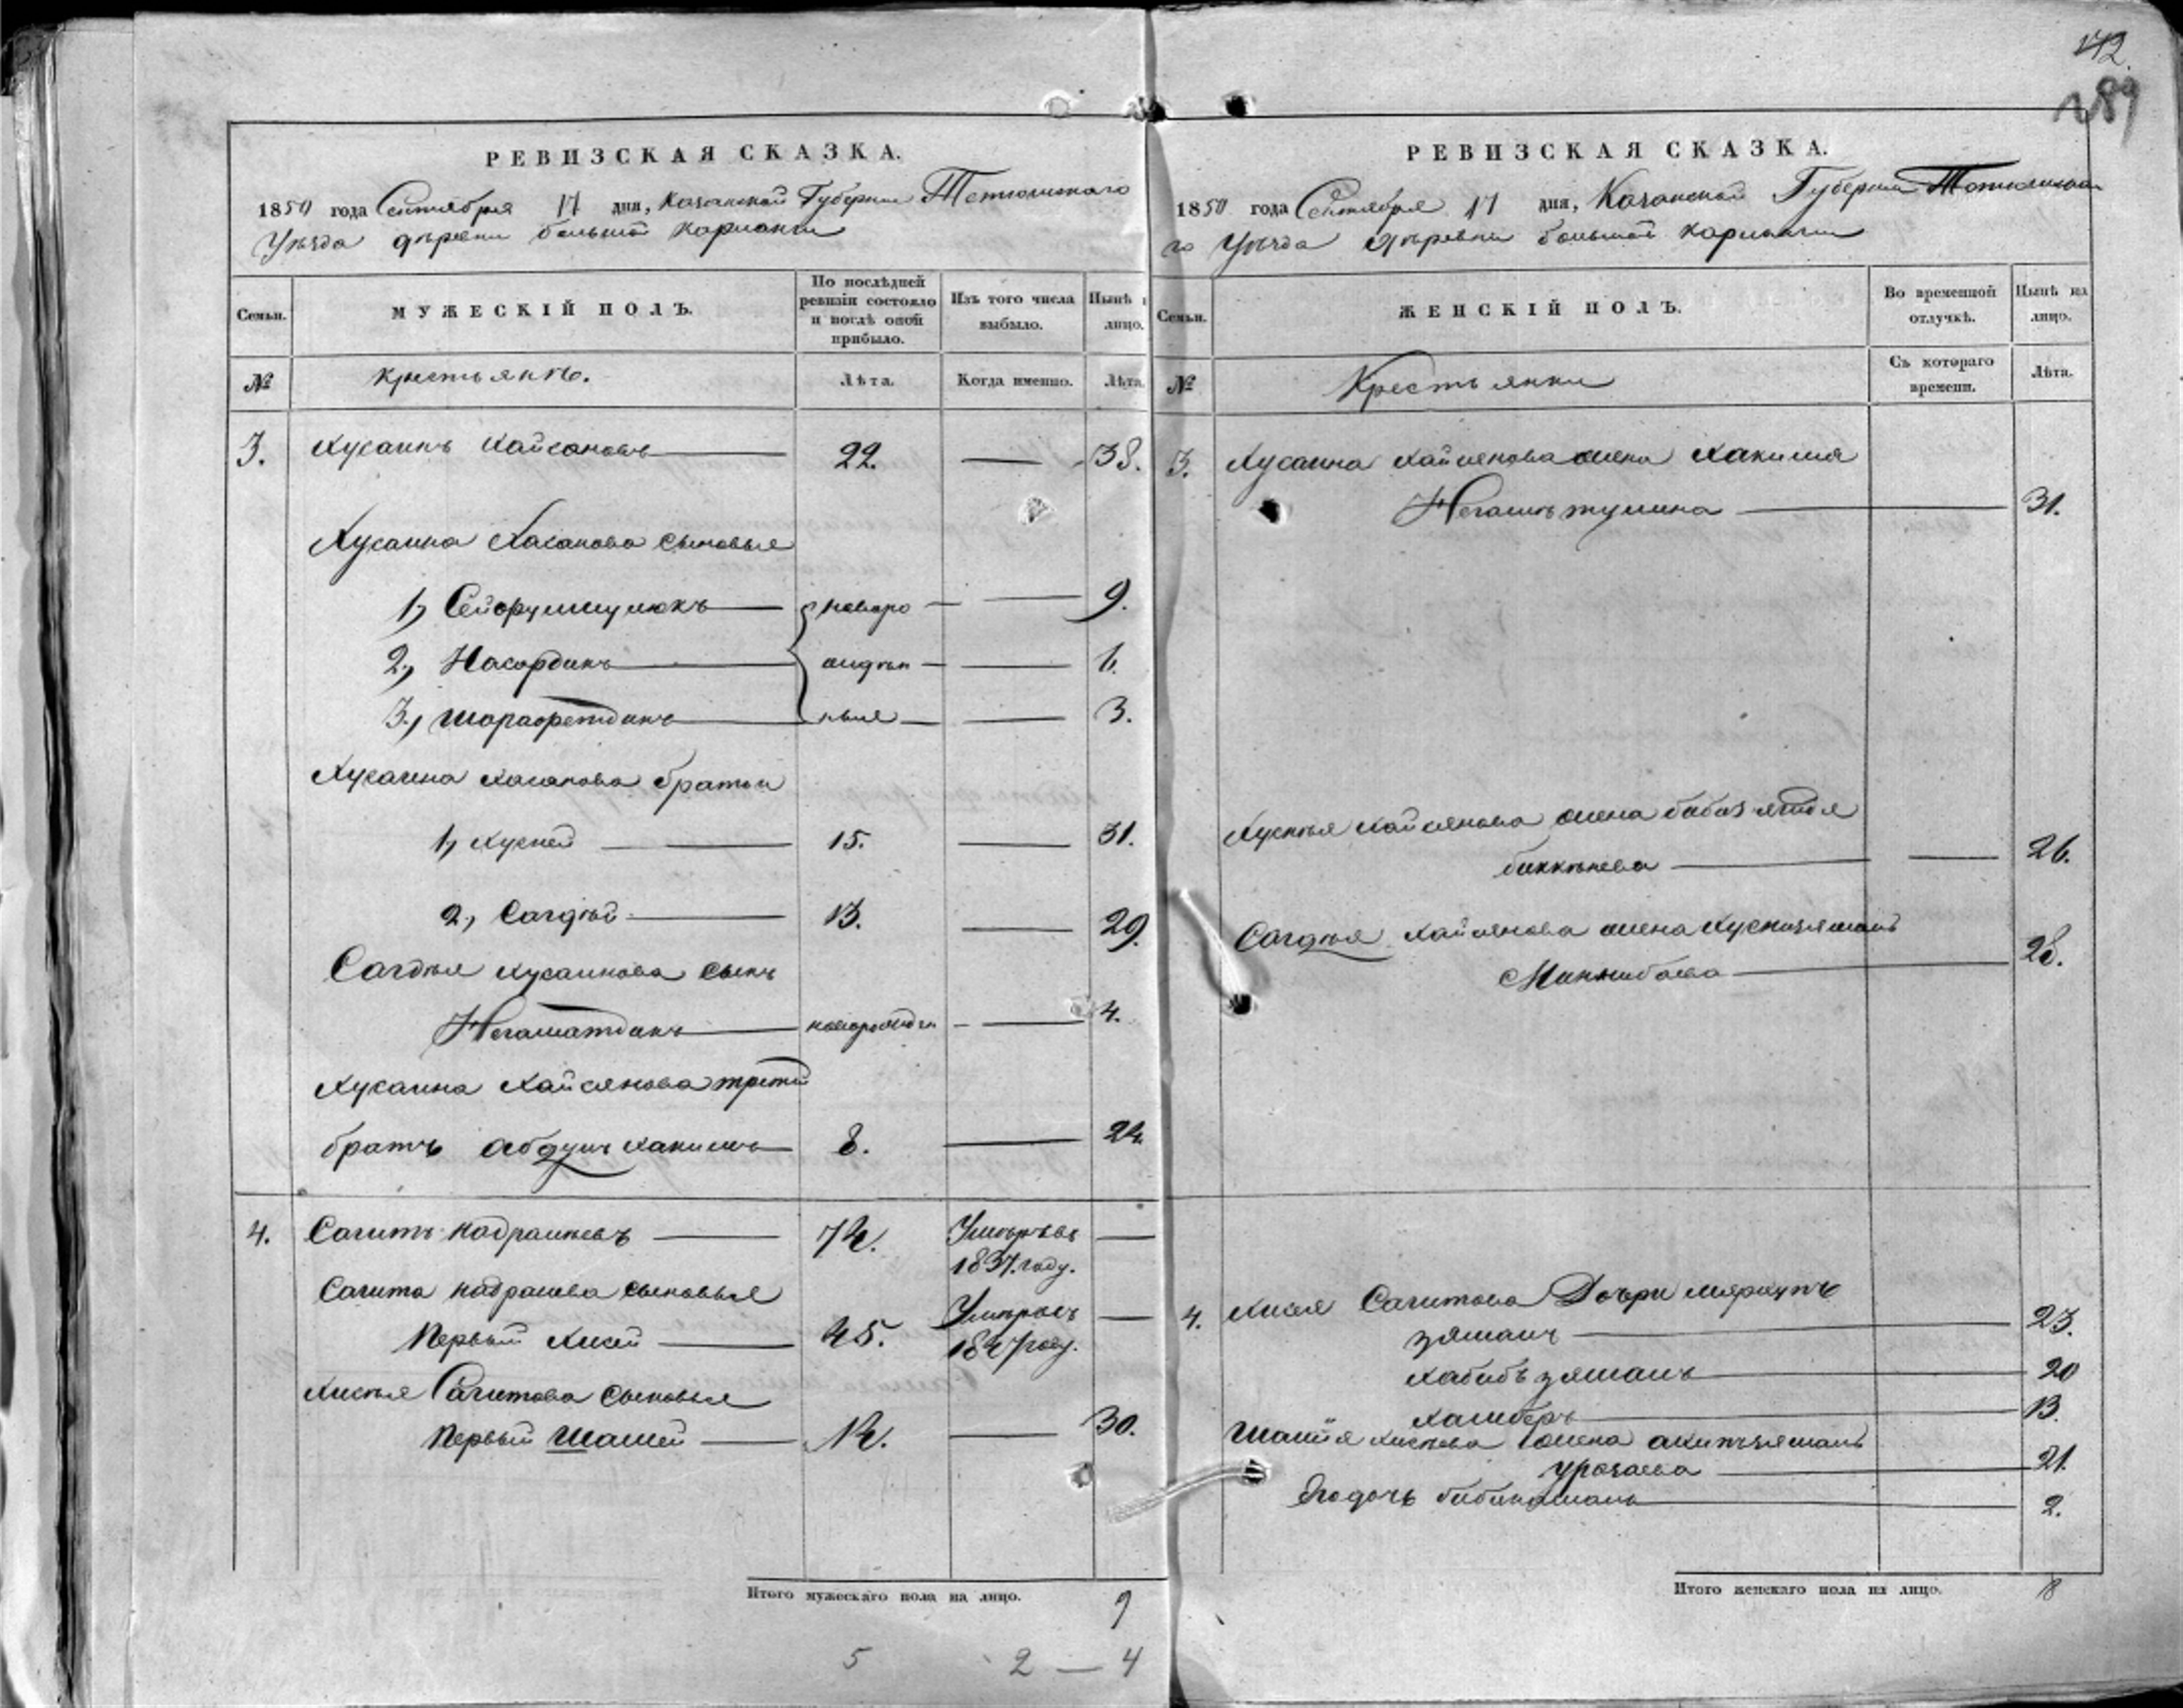 142.
189
РЕВИЗСКАЯ СКАЗКА.
1850 года Сентября 17 дня, Казанской Губернии Тетюшскаго
Уѣзда дѣревни большой
Семьи.
МУЖЕСКІЙ ПОЛЪ.
По послѣдней ревизіи состояло и послѣ оной прибыло.
Изъ того числа выбыло.
Нынѣ лицо.
№
крестьянъ.
Лѣта.
Когда именно.
Лѣта.
3. Хусаинъ Хайсановъ 22. — 38.
Хусаина Хасанова сыновья
1, — 9.
2, Насординъ —
3, Шарафетдинъ — 3.
новорожденные
Хусаина Хасанова братьи
1, Хусней 15. — 31.
2, Сагдѣй 13. — 29.
Сагдѣя Хусаинова сынъ
Негаматдинъ — 4.
Хусаина Хайсянова третій
братъ Абдулхакимъ 8. — 24.
4. Сагитъ 74. Умѣръ въ —
1837. году.
Сагита сыновья
Первый Хисей 45. Умѣръ въ —
1847 году.
Хисѣя Сагитова сыновья
Первый Шамей 14. — 30.
Итого мужескаго пола на лицо. 9
5 2 — 4
РЕВИЗСКАЯ СКАЗКА.
1850 года Сентября 17 дня, Казанской Губернии Тетюшска
го Уѣзда дѣревни большой
Семьи.
ЖЕНСКІЙ ПОЛЪ.
Во временной отлучкѣ.
Нынѣ на лицо.
№
Крестьянки
Съ котораго времени.
Лѣта.
3. Хусаина Хайсенова жена Хакима
31.
Хуснѣя Хайсянова жена
биккѣнева — 26.
Сагдѣя Хайсянова жена Хуснизямалъ
Миннибаева 28.
4. Хисея Сагитова Дочри
зямалъ 23.
Хабибъ зямалъ 20
13.
Шамѣя Хисѣева жена
Уразаева 21.
бибикамалъ 2.
Итого женскаго пола на лицо. 8